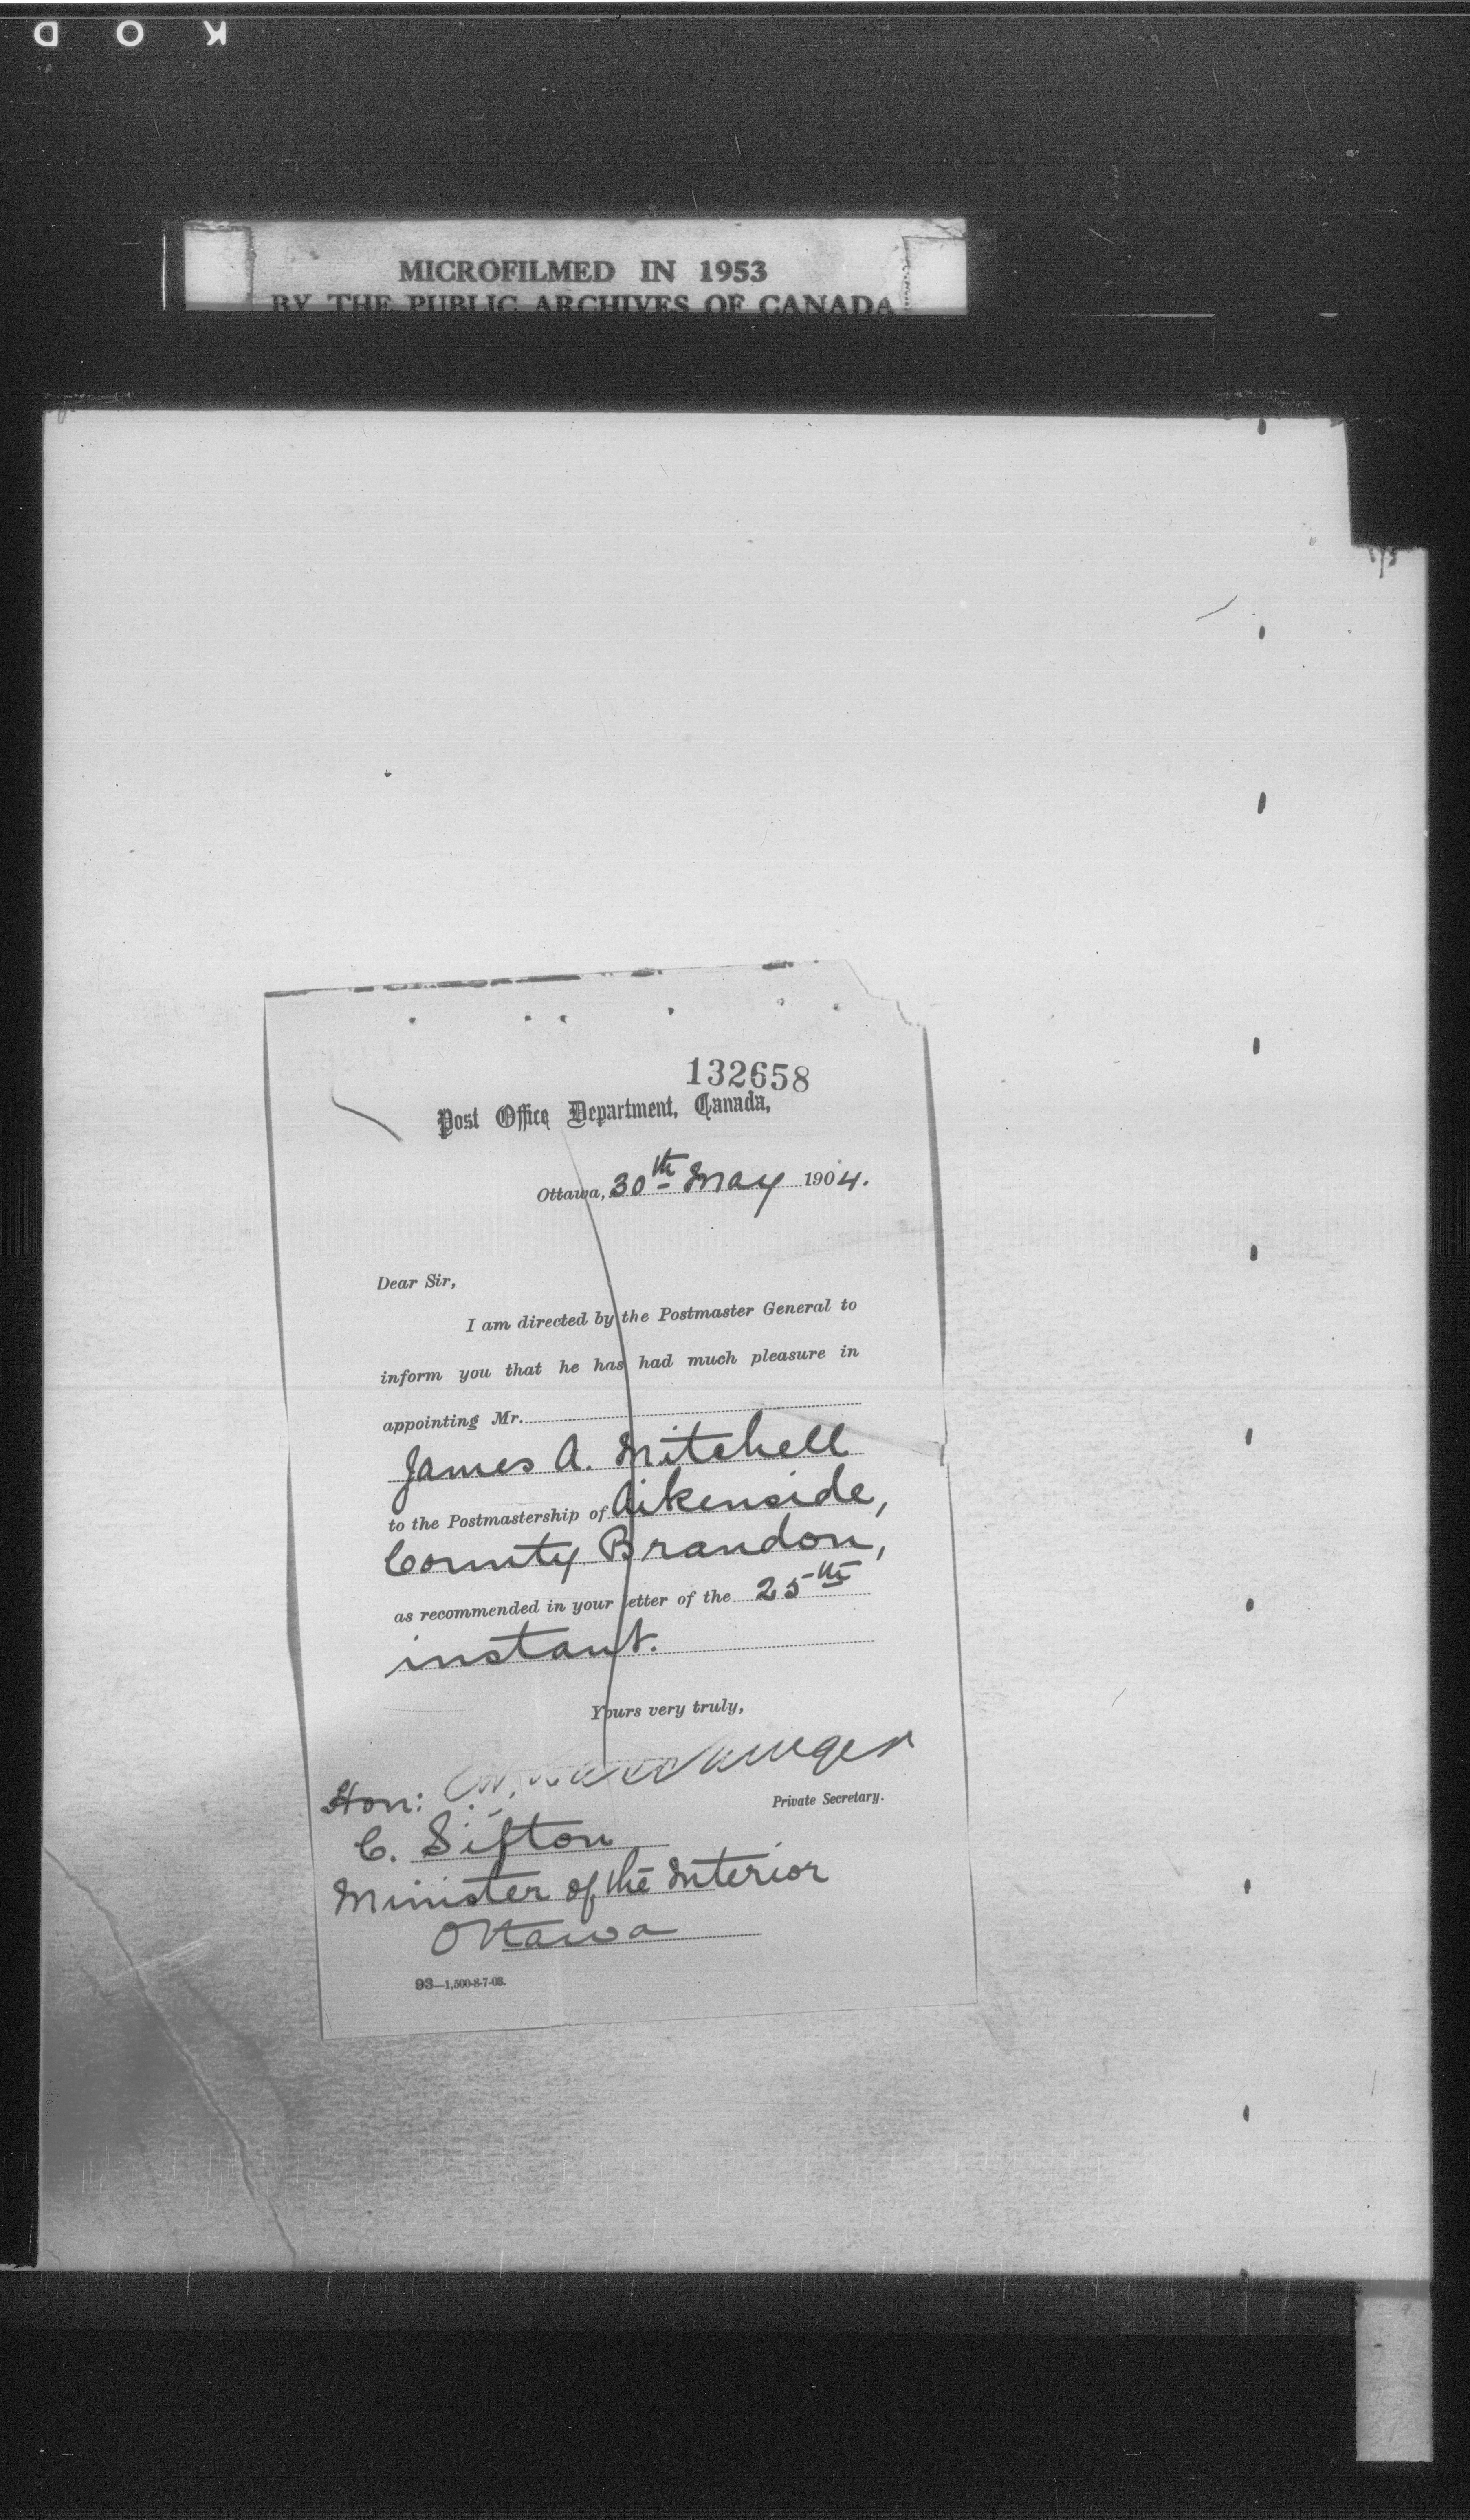 K O D
MICROFILMED IN 1953
BY THE PUBLIC ARCHIVES OF CANADA
132658
Post Office Department, Canada,
Ottawa, 30th May 1904.
Dear Sir,
I am directed by the Postmaster General to
inform you that he has had much pleasure in
appointing Mr.
James A. Mitchell
to the Postmastership of Aikenside,
County Brandon,
as recommended in your letter of the 25th
instant.
Yours very truly,
Private Secretary.
Hon:
C. Sifton
Minister of the Interior
Ottawa
93—1,500-8-7-03.